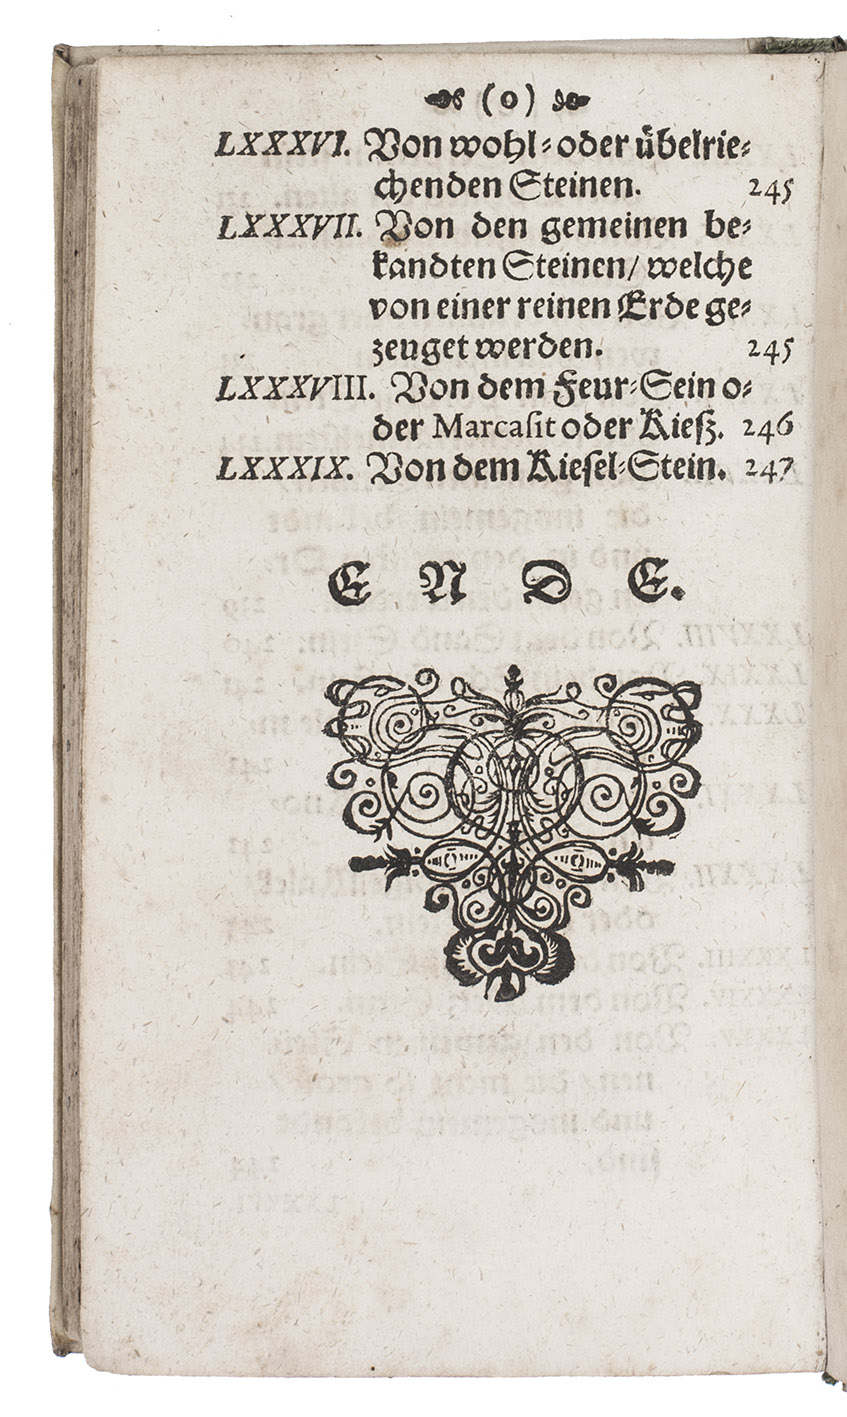 (0)
LXXXVI. Von wohl⸗ oder übelrie⸗
chenden Steinen. 245
LXXXVII. Von den gemeinen be⸗
kandten Steinen/ welche
von einer reinen Erde ge⸗
zeuget werden. 245
LXXXVIII. Von dem Feur⸗Sein o⸗
der Marcaſit oder Kieſz. 246
LXXXIX. Von dem Kieſel⸗Stein. 247
E N D E.